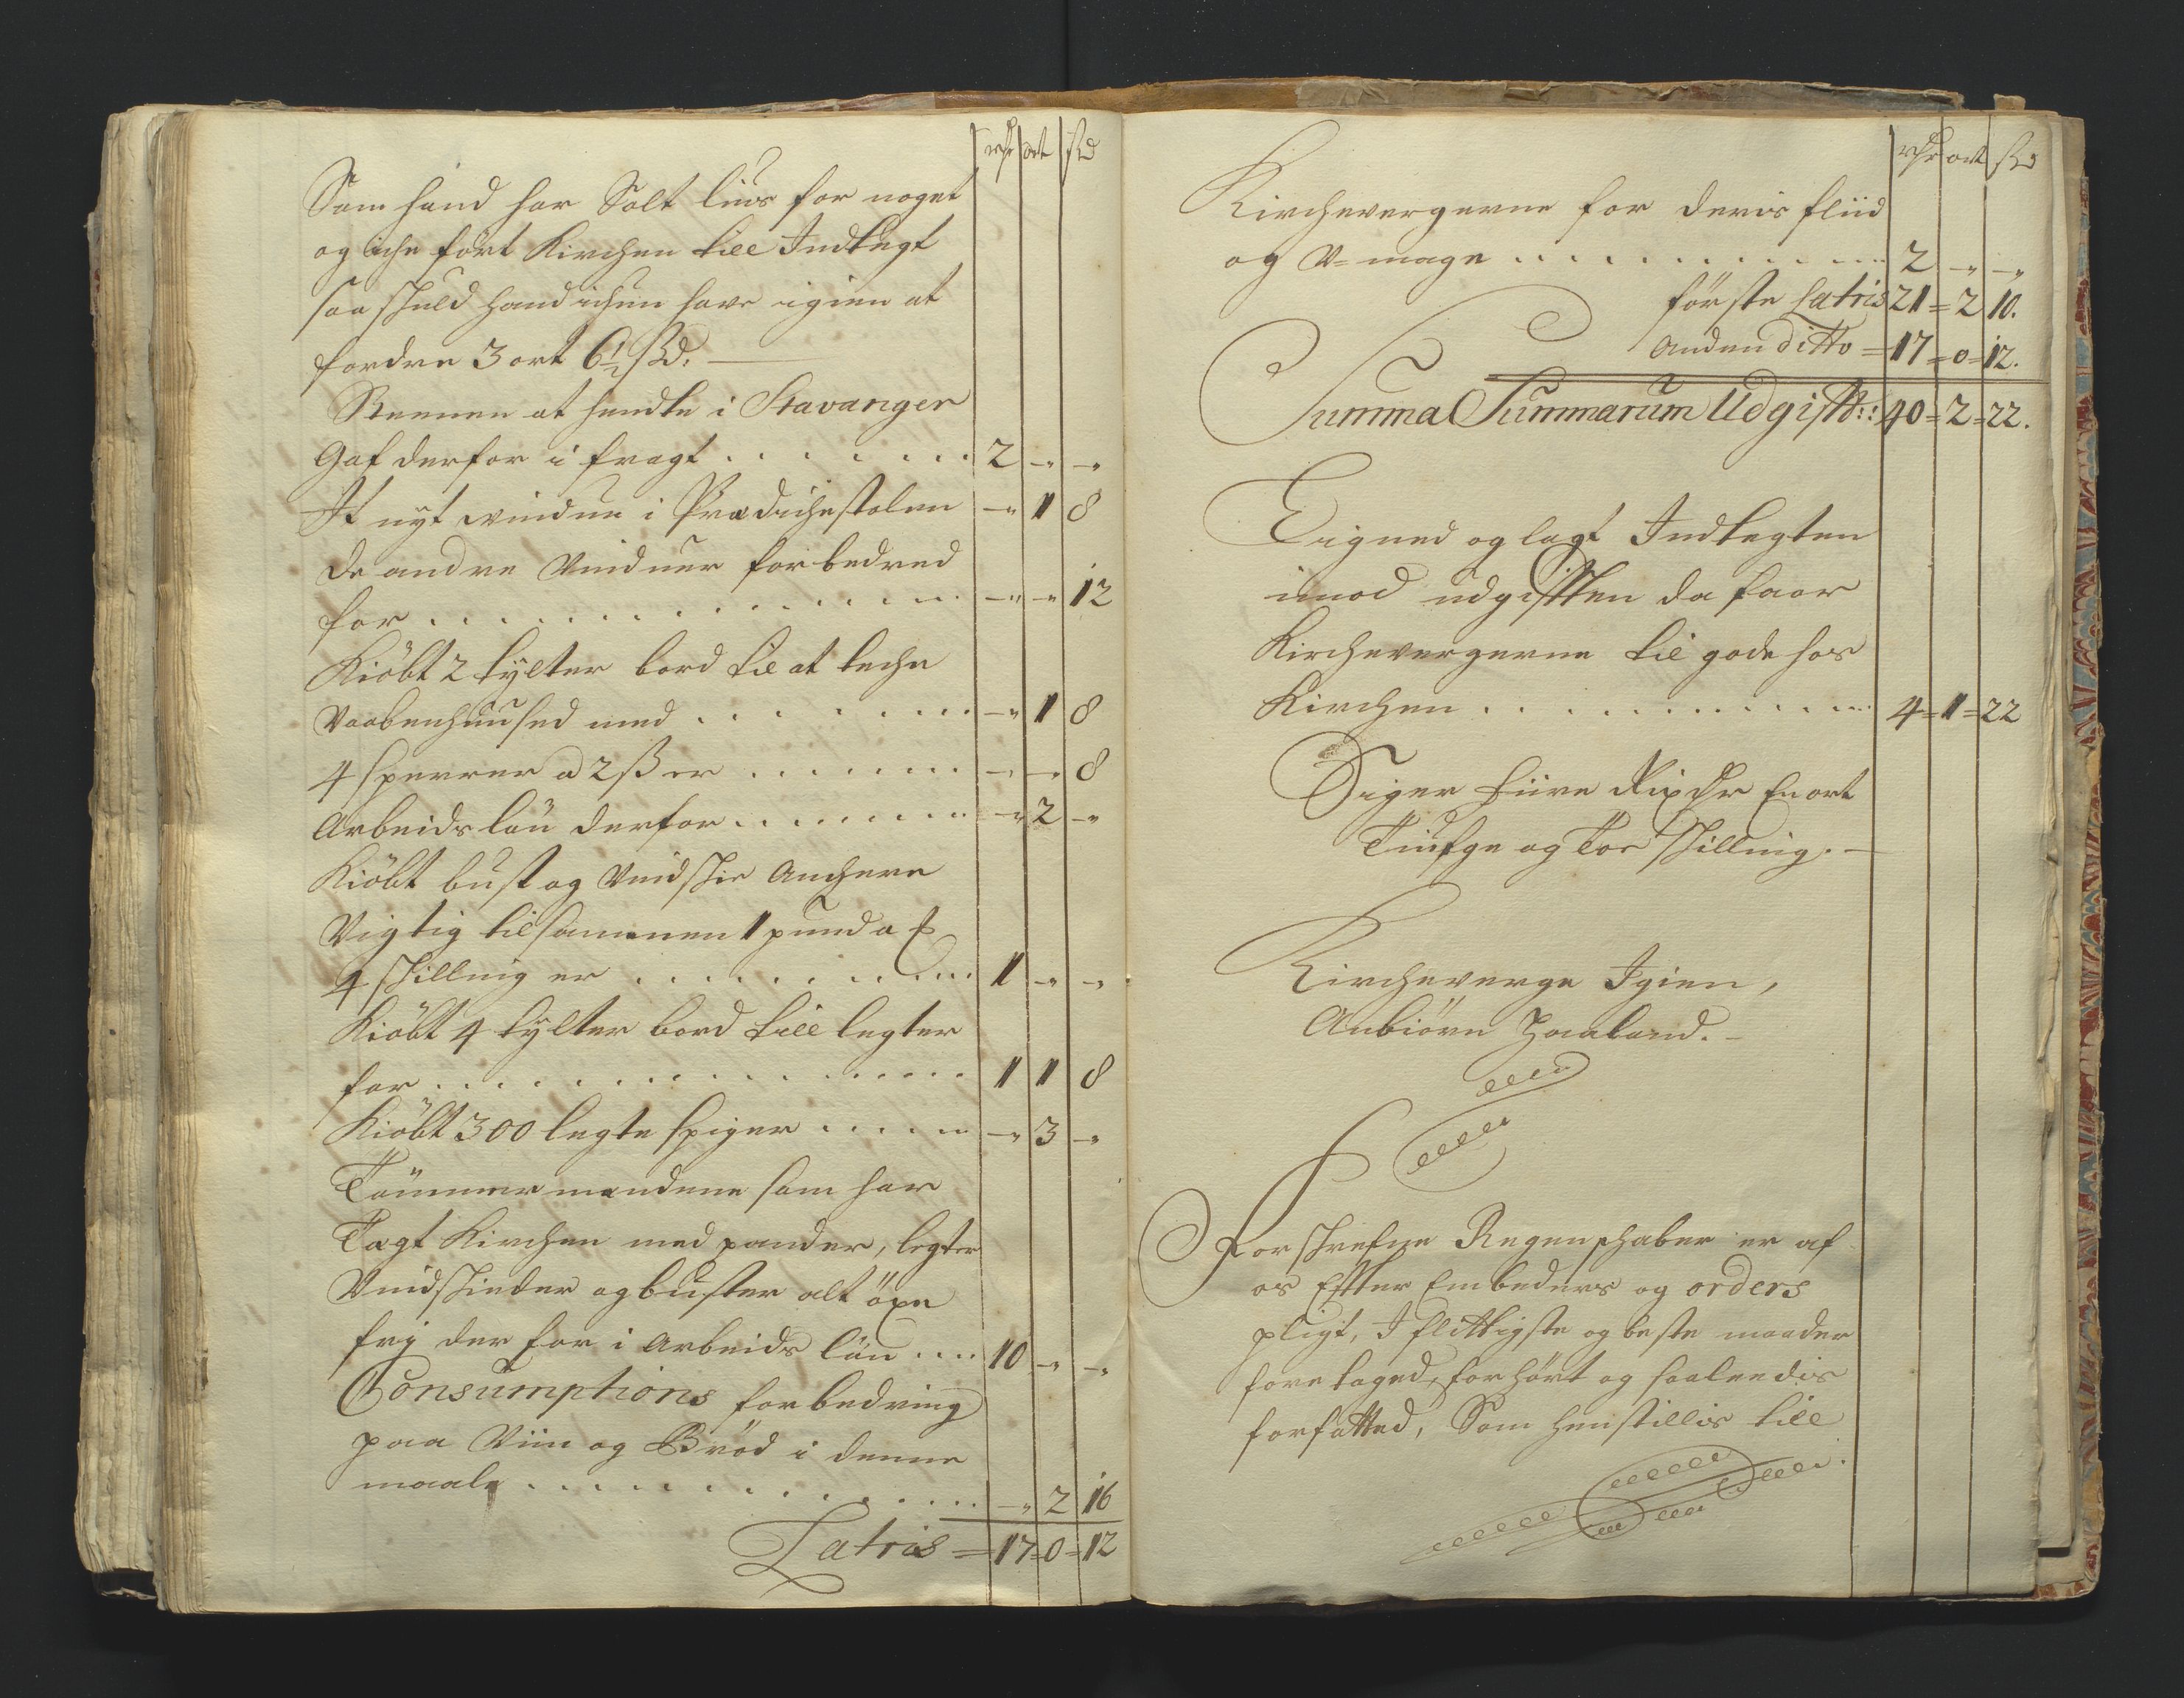 rdr ort sk
Som hand har Solt liuus for noget
og iche fört Kirchen till Indtegt
saa skuld hand ichun have igien at
fordre 3 ort 6½ sk.
at hendte i Stavanger
Gaf derfor i fragt . . . . . . . . 2 - -
It nÿt vindue i Prædichestolen - 1 8
De andre Vinduer forbedred
for . . . . . . . . . . . . . . . . - - 12
Kiöbt 2 tÿlter bord til at teche
Vaabenhuused med . . . . . . . . - 1 8
4 sperrer a 2 ß er . . . . . . . . - - 8
Arbeids lön derfor . . . . . . . . . - 2 -
Kiöbt bust og Vindskie Anchere
Vigtig tilsammen 1 pund a
4 skilling er . . . . . . . . . . . 1 - -
Kiöbt 4 tÿlter bord till legter
for . . . . . . . . . . . . . . . . . 1 1 8
Kiöbt 300 legte spiger . . . . . . - 3 -
Tömmermendene som har
Tagt Kirchen med pander, legter
Vindskieder og buster alt öxe
frÿ der for i Arbeids lön . . . . 10 - -
Consumptions forbedring
paa Viin og Bröd i denne
maale . . . . . . . . . . . . . . - 2 16
Latris = 17 = 0 = 12
rdr ort sk
Kirchevergerne for deris fliid
og U-mage . . . . . . . . . . . . . 2 - -
förste Latris 21 = 2 10.
Anden ditto = 17 = 0 = 12.
Summa Summarum Udgift:: 40 = 2 = 22.
Eigned og lagt Indtegten
imod udgifften da faar
Kirchevergerne til gode hos
Kirchen . . . . . . . . . . . . . . 4 = 1 = 22
Siger fiire Rixdr En ort
Tiufge og Toe skilling.
Kircheverge Igien,
Anbiörn Haaland.
Forskrefne Regenskaber er af
os Efter Embeders og orders
pligt, I flittigste og beste maader
foretaged, forhört og saaleedis
forfatted, Som henstillis till